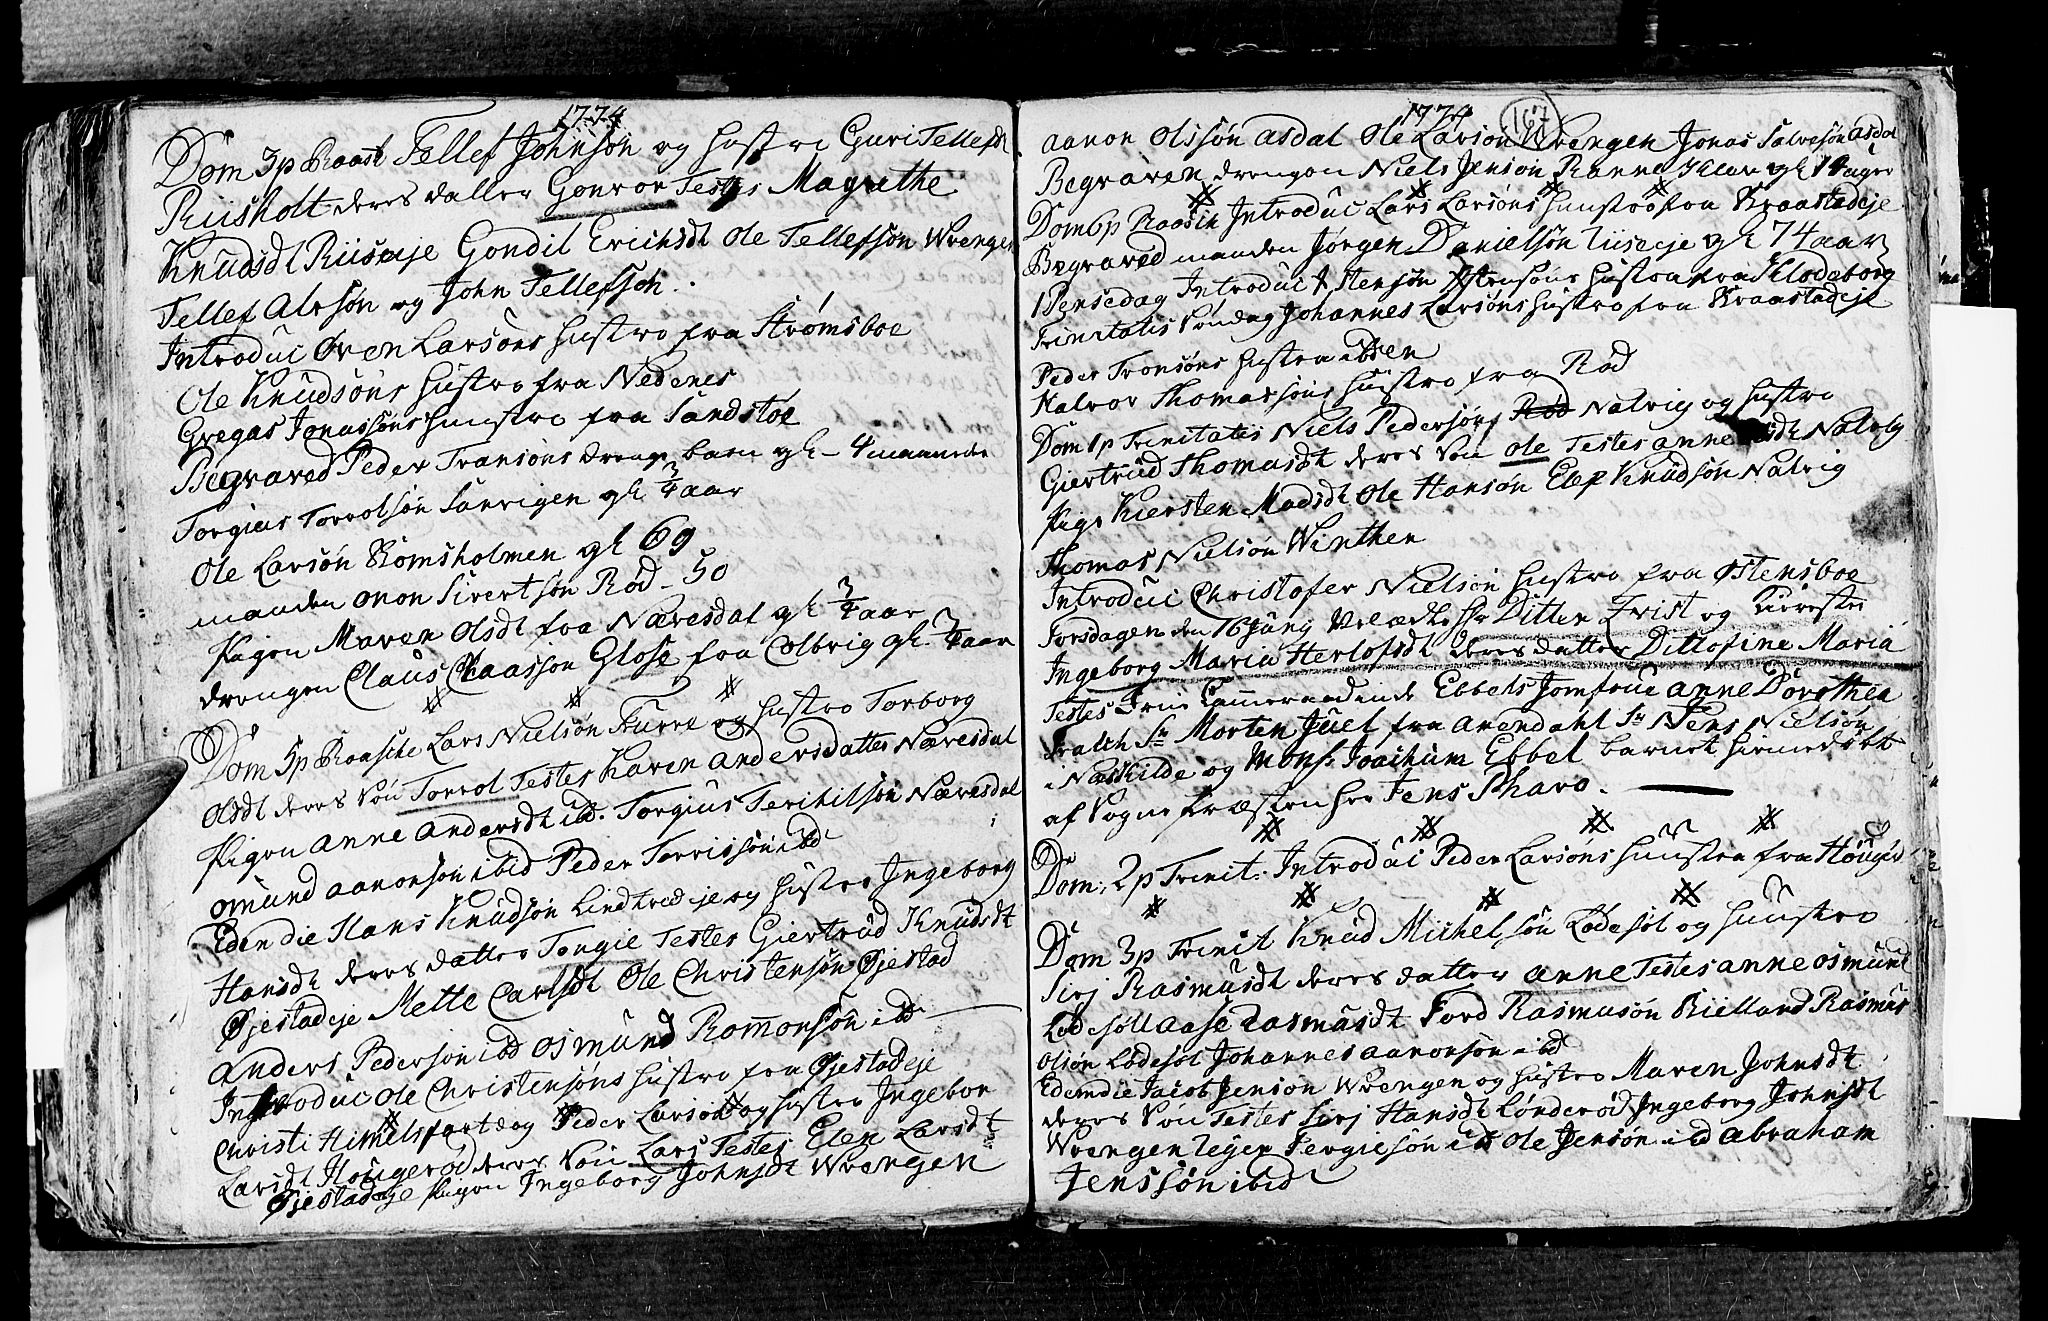 1774
Dom 3p Paask Tellef Johnson og hustro Guri Tellefsdt
Riisholt deres datter Gonvor Testes Magrethe
Knudsdt Riiseeje Gondil Erichsdt Ole Tellefsøn Wrengen
Tellef Alvsøn og John Tellefsøn.
Introduc Øven Larsøns hustro fra Strømsboe
Ole Knudsøns hustro fra Nedenes
Gregas Jonassøns hustro fra Sandstøe
Begraved Peder Tronsøns drenge barn gl - 4 maaneder
Torgius Torrolsøn gl 3/4 aar
Ole Larsøn Romsholmen gl 69
manden Onon Sivertsøn Rød - 50
Pigen Maren Olsdt fra Næresdal gl 3/4 aar
drengen Claus Claasson Glose fra Colbrig gl. 3/4 aar
Dom 5p Paaske Lars Nielsøn Furre og hustro Torborg
Olsdt deres Søn Torrol Testes Karen Andersdatter Næresdal
Pigen Anne Andersdt ibd. Torgius Terikilsøn Næresdal
Omund Aaronsøn ibid Peder Torrissøn ibd
Eden die Hans Knudsøn Lindtvedeje og hustro Ingeborg
Hansdt deres datter Tongie Testes Giertrud Knudsdt
Øjestadeje Mette Carlsdt Ole Christensøn Øjestad
Anders Pedersøn ibd Osmund Romonsøn ibd
Introduc Ole Christensøns hustro fra Øjestadeje
Christi Himelsfartdag Peder Larsøn og hustro Ingebor
Larsdt Hougerød deres Søn Lars Testes Elen Larsdt
Øjestadeje Pigen Ingeborg Johnsdt Wrengen
1774 167
Aanon Olssøn Asdal Ole Larsøn Wrengen Jonas Salvesøn Asdal
Begraven drengen Niels Jensøn gl 14 uger
Dom 6p Paaske Introduc Lars Larsøns hustro fra Kraastadeje
Begraved manden Jørgen Danielsøn gl 74 aar
1 Pinsedag Introduc hustro fra Klodeborg
Trinitatis Søndag Johannes Larsøns hustro fra Kraastadeje
Peder Tronsøns hustro ibden
Halvor Thomassøns hustro fra Rød
Dom 1p Trinitatis Niels Pedersøn Rød Natvig og hustro
Giertrud Thomasdt deres Søn Ole Testes Anne Natvig
Pige Kiersten Madsdt Ole Hansøn Elef Knudsøn Natvig
Thomas Nielsøn Winther
Introduc Christofer Nielsøn hustro fra Østensboe
Torsdagen den 16 Junij Velædle Hr Ditlev Frist og Kiereste
Ingeborg Maria Herlofsdt deres datter Ditlofine Maria
Testes Frue Cammeraadinde Ebbels Jomfrue Anne Dorothea
Falch Sr Morten Juel fra Arendahl Sr Jens Nielsøn
i Næskilde og Mons: Joachum Ebbel barnet hiemedøbt
af Sogne Præsten Her Jens Pharo.
Dom. 2p Trinit. Introduc Peder Larsøns hustro fra Hougerød
Dom 3p Trinit Knud Michelsøn Lødesøl og hustro
Sirj Rasmusdt deres datter Anne Testes Anne Osmund
Lødesøll Aase Rasmusdt Tord Rasmusøn Kielland Rasmus
Olsøn Lødesøl Johannes Aanonsøn ibd
Edemdie Jacob Jensøn Wrengen og hustro Maren Johnsdt
deres Søn Testes Sirj Hansdt Lønderød Ingeborg Johnsdt
Wrengen Tergiesøn ibd Ole Jensøn ibd Abraham
Jenssøn ibid